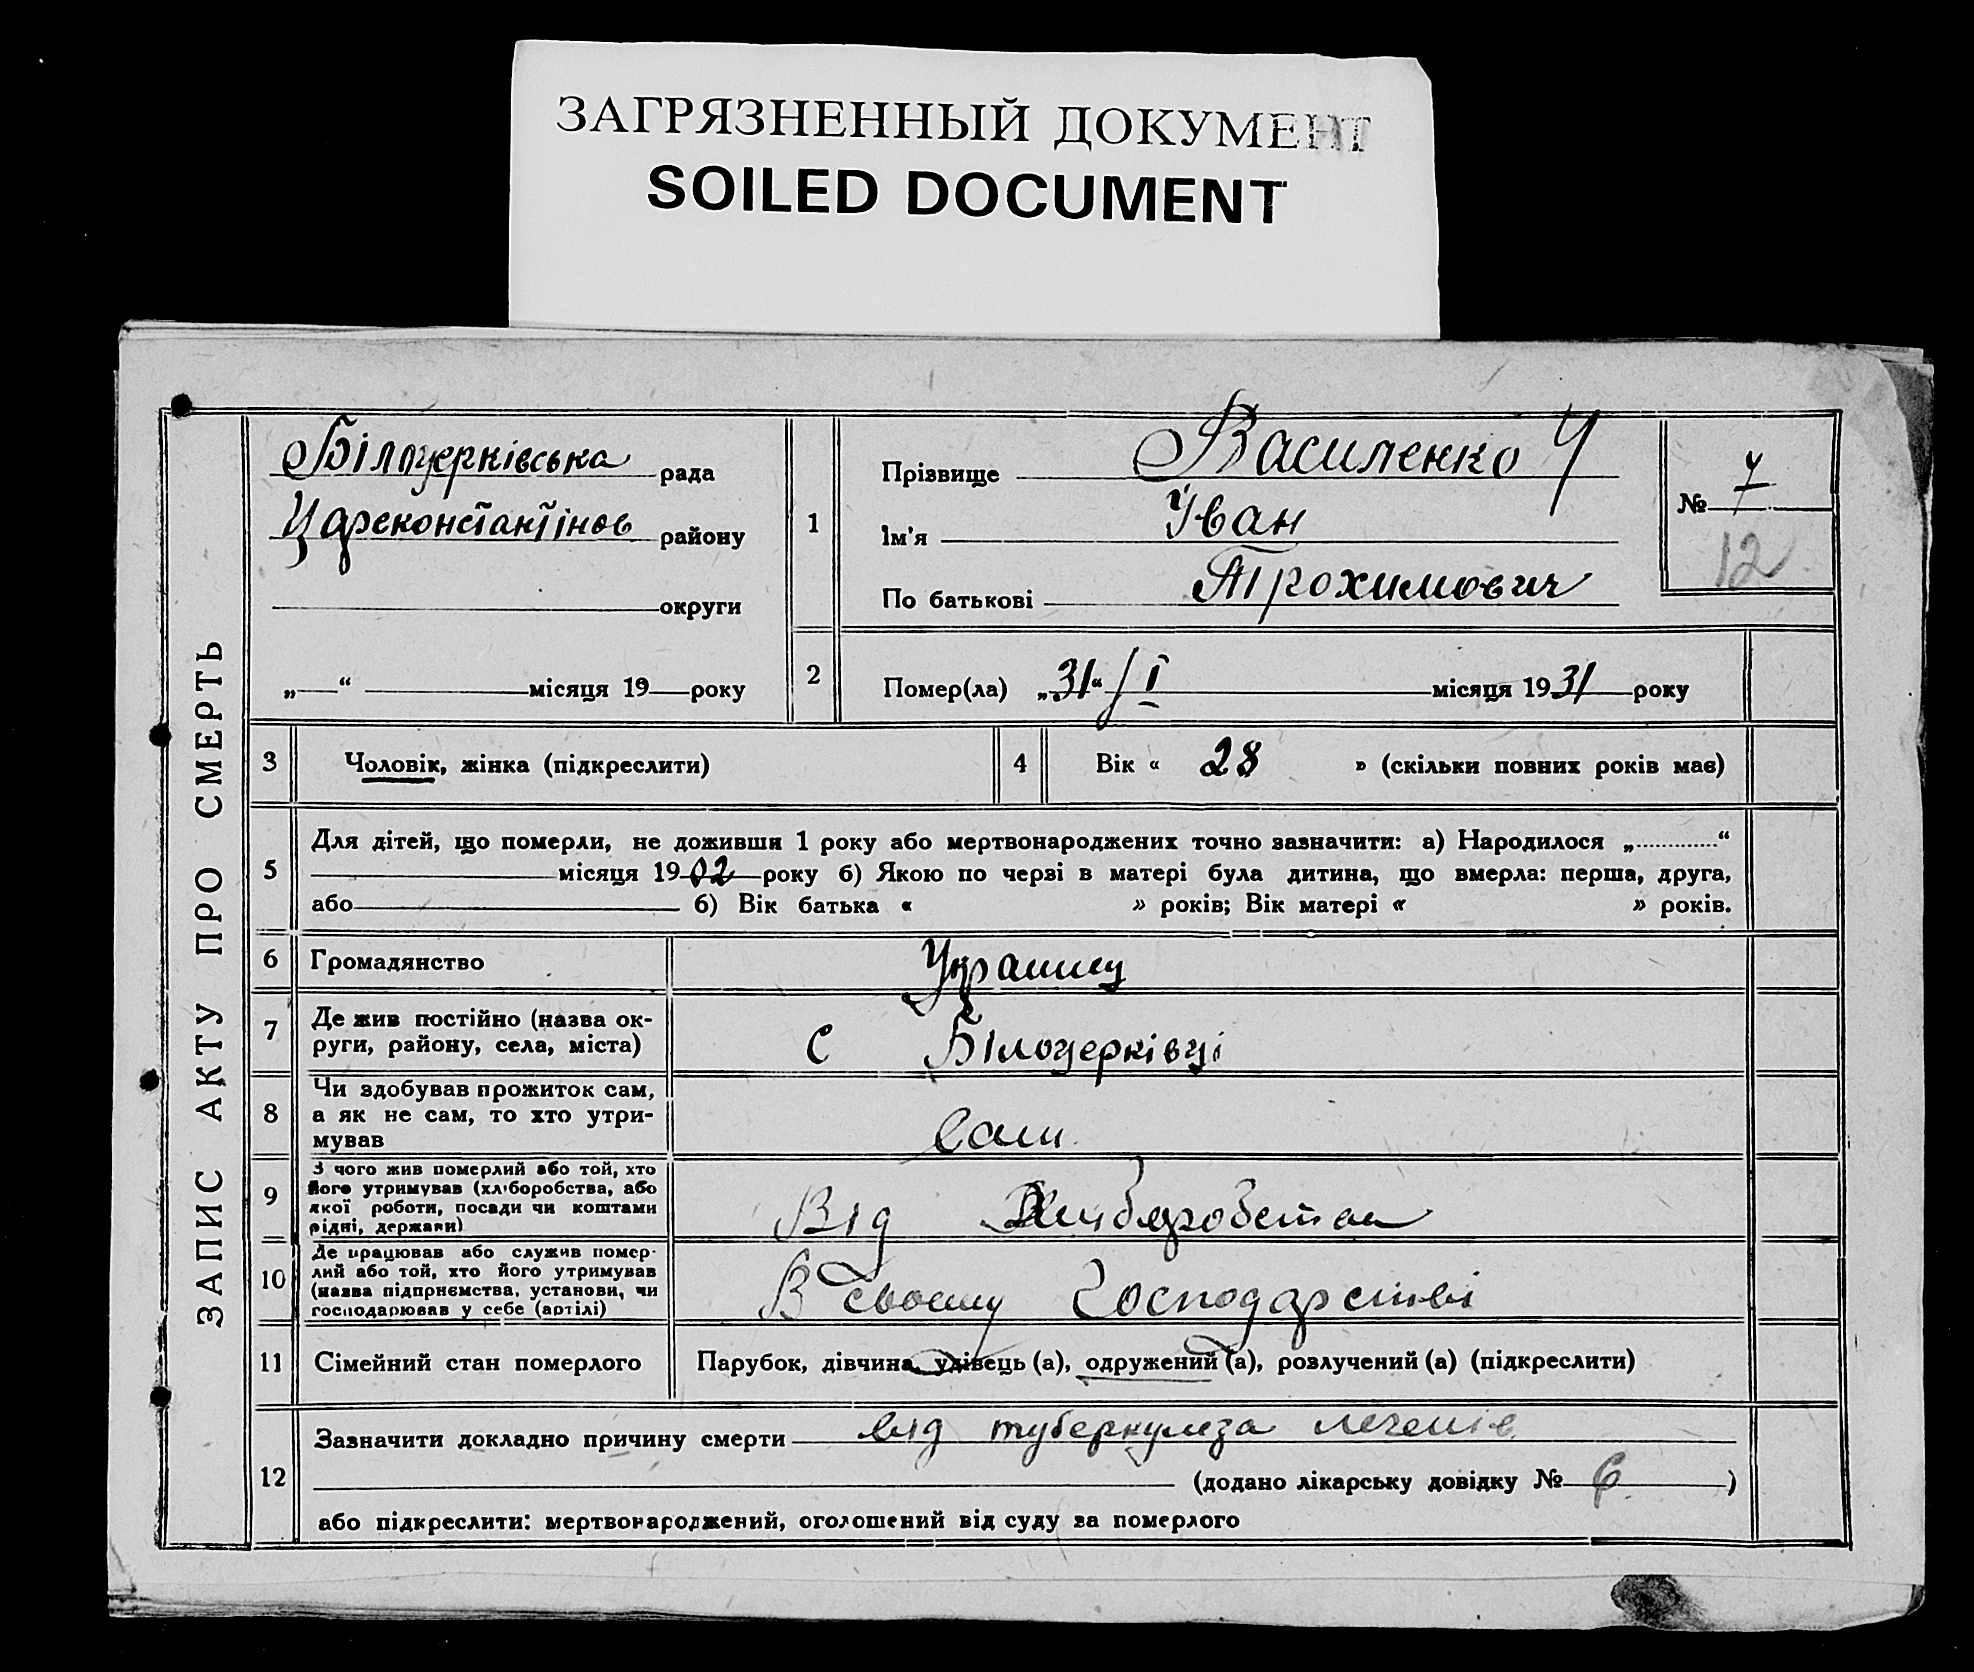 ЗАГРЯЗНЕННЫЙ ДОКУМЕНТ
SOILED DOCUMENT
ЗАПИС АКТУ ПРО СМЕРТЬ
Білоцерківська рада
Цареконстантінов району
округи
„ “ місяця 19 року
1
Прізвище Василенко Ч
Ім'я Іван
По батькові Трохимович
№ 7
12
2
Помер(ла) „31“ / І місяця 1931 року
3 Чоловік, жінка (підкреслити)
4 Вік « 28 » (скільки повних років має)
5 Для дітей, що померли, не доживши 1 року або мертвонароджених точно зазначити: а) Народилося „.............“
місяця 1902 року б) Якою по черзі в матері була дитина, що вмерла: перша, друга,
або б) Вік батька « » років; Вік матері « » років.
6 Громадянство Украинц
7 Де жив постійно (назва ок-
руги, району, села, міста) С Білоцерківці
8 Чи здобував прожиток сам,
а як не сам, то хто утри-
мував Сам
9 З чого жив померлий або той, хто
його утримував (хліборобства, або
якої роботи, посади чи коштами
рідні, держави) Від
10 Де працював або служив помер-
лий або той, хто його утримував
(назва підприємства, установи, чи
господарював у себе (артілі) В своему Господарстві
11 Сімейний стан померлого Парубок, дівчина, удівець (а), одружений (а), розлучений (а) (підкреслити)
12 Зазначити докладно причину смерти від туберкульза
(додано лікарську довідку № 6 )
або підкреслити: мертвонароджений, оголошений від суду за померлого